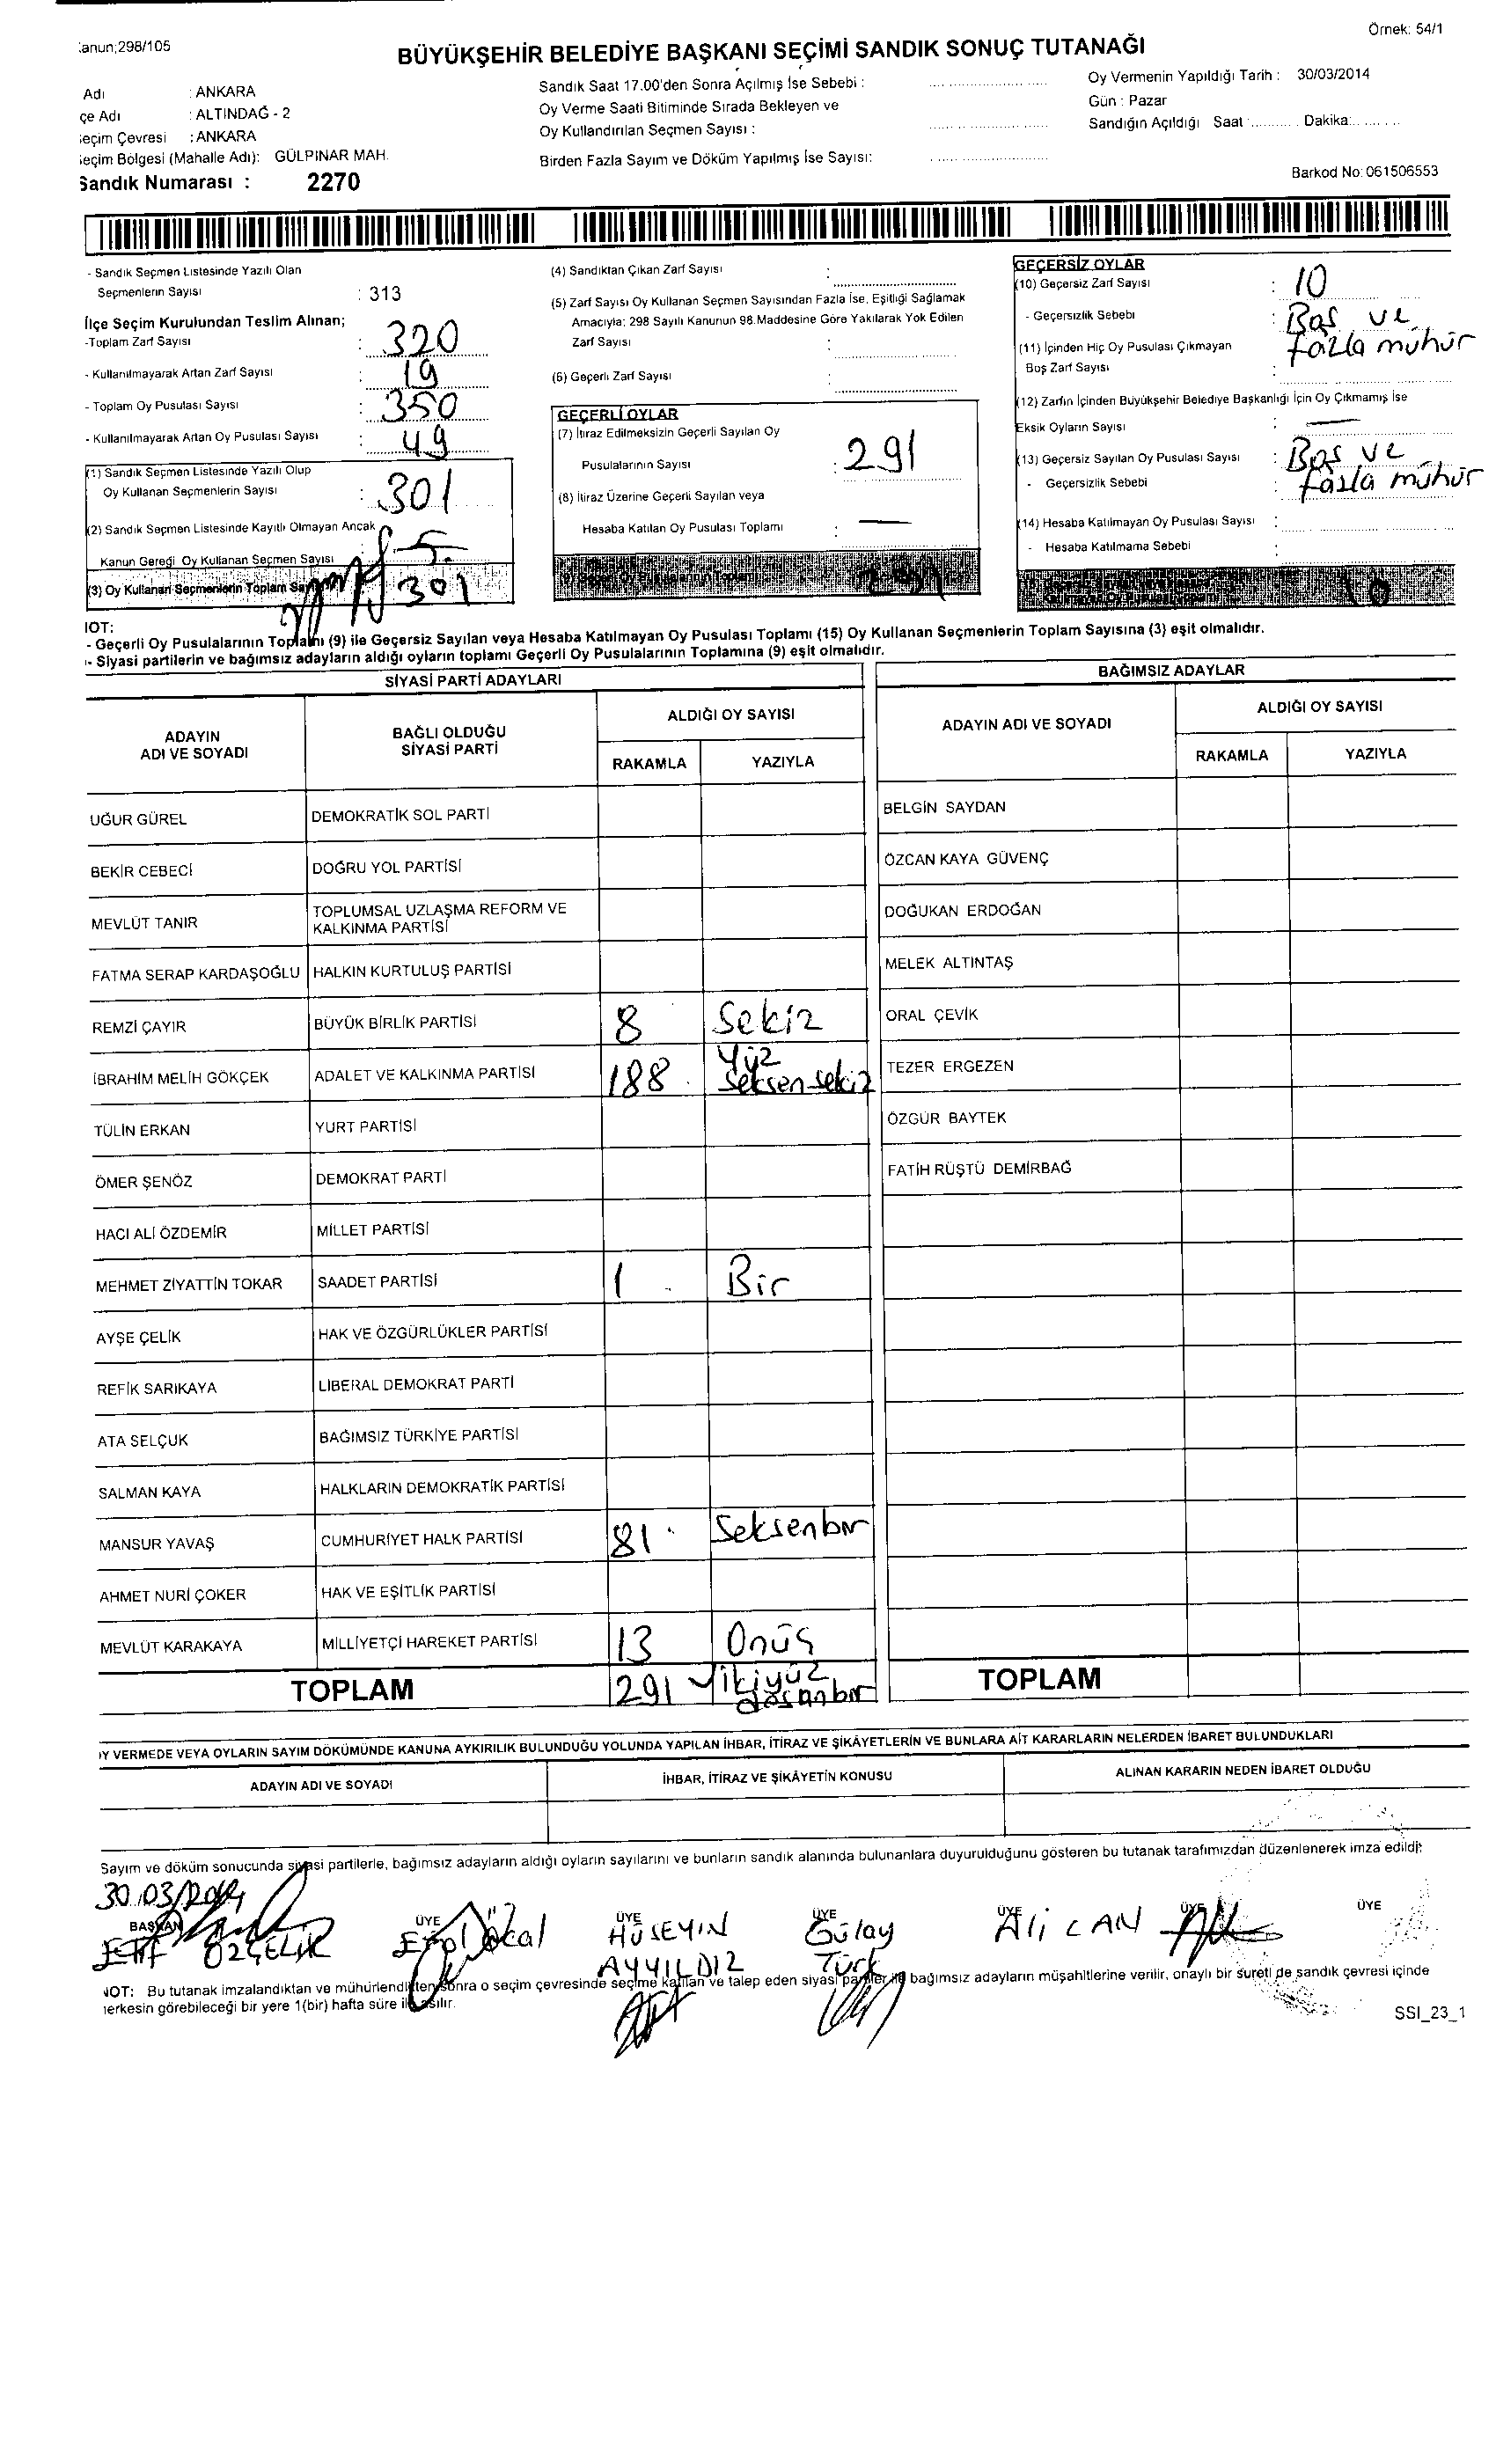 Örnek: 54/1
anun;298/105
BÜYÜKŞEHİR BELEDİYE BAŞKANI SEÇİMİ SANDIK SONUÇ TUTANAĞI
Adı : ANKARA
çe Adı : ALTINDAĞ - 2
eçim Çevresi : ANKARA
eçim Bölgesi (Mahalle Adı): GÜLPINAR MAH.
Sandık Numarası : 2270
Sandık Saat 17.00'den Sonra Açılmış İse Sebebi :
Oy Verme Saati Bitiminde Sırada Bekleyen ve
Oy Kullandırılan Seçmen Sayısı :
Birden Fazla Sayım ve Döküm Yapılmış İse Sayısı:
Oy Vermenin Yapıldığı Tarih : 30/03/2014
Gün : Pazar
Sandığın Açıldığı Saat :........... Dakika:..........
Barkod No: 061506553
- Sandık Seçmen Listesinde Yazılı Olan
Seçmenlerin Sayısı : 313
İlçe Seçim Kurulundan Teslim Alınan;
-Toplam Zarf Sayısı : 320
- Kullanılmayarak Artan Zarf Sayısı : 19
- Toplam Oy Pusulası Sayısı : 350
- Kullanılmayarak Artan Oy Pusulası Sayısı : 49
(1) Sandık Seçmen Listesinde Yazılı Olup
Oy Kullanan Seçmenlerin Sayısı : 301
(2) Sandık Seçmen Listesinde Kayıtlı Olmayan Ancak
Kanun Gereği Oy Kullanan Seçmen Sayısı
(3) Oy Kullanan Seçmenlerin Toplam 301
(4) Sandıktan Çıkan Zarf Sayısı :
(5) Zarf Sayısı Oy Kullanan Seçmen Sayısından Fazla İse, Eşitliği Sağlamak
Amacıyla; 298 Sayılı Kanunun 98.Maddesine Göre Yakılarak Yok Edilen
Zarf Sayısı :
(6) Geçerli Zarf Sayısı :
GEÇERLİ OYLAR
(7) İtiraz Edilmeksizin Geçerli Sayılan Oy
Pusulalarının Sayısı : 291
(8) İtiraz Üzerine Geçerli Sayılan veya
Hesaba Katılan Oy Pusulası Toplamı : —
291
GEÇERSİZ OYLAR
(10) Geçersiz Zarf Sayısı : 10
- Geçersizlik Sebebi : Boş ve
fazla mühür
(11) İçinden Hiç Oy Pusulası Çıkmayan
Boş Zarf Sayısı :
(12) Zarfın İçinden Büyükşehir Belediye Başkanlığı İçin Oy Çıkmamış İse
Eksik Oyların Sayısı : —
(13) Geçersiz Sayılan Oy Pusulası Sayısı : Boş ve
- Geçersizlik Sebebi fazla mühür
(14) Hesaba Katılmayan Oy Pusulası Sayısı :
- Hesaba Katılmama Sebebi :
10
IOT:
- Geçerli Oy Pusulalarının Toplamı (9) ile Geçersiz Sayılan veya Hesaba Katılmayan Oy Pusulası Toplamı (15) Oy Kullanan Seçmenlerin Toplam Sayısına (3) eşit olmalıdır.
- Siyasi partilerin ve bağımsız adayların aldığı oyların toplamı Geçerli Oy Pusulalarının Toplamına (9) eşit olmalıdır.
SİYASİ PARTİ ADAYLARI
BAĞIMSIZ ADAYLAR
ADAYIN
ADI VE SOYADI
BAĞLI OLDUĞU
SİYASİ PARTİ
ALDIĞI OY SAYISI
RAKAMLA YAZIYLA
ADAYIN ADI VE SOYADI
ALDIĞI OY SAYISI
RAKAMLA YAZIYLA
UĞUR GÜREL DEMOKRATİK SOL PARTİ BELGİN SAYDAN
BEKİR CEBECİ DOĞRU YOL PARTİSİ ÖZCAN KAYA GÜVENÇ
MEVLÜT TANIR TOPLUMSAL UZLAŞMA REFORM VE
KALKINMA PARTİSİ DOĞUKAN ERDOĞAN
FATMA SERAP KARDAŞOĞLU HALKIN KURTULUŞ PARTİSİ MELEK ALTINTAŞ
REMZİ ÇAYIR BÜYÜK BİRLİK PARTİSİ 8 Sekiz ORAL ÇEVİK
İBRAHİM MELİH GÖKÇEK ADALET VE KALKINMA PARTİSİ 188 Yüz
Seksen sekiz TEZER ERGEZEN
TÜLİN ERKAN YURT PARTİSİ ÖZGÜR BAYTEK
ÖMER ŞENÖZ DEMOKRAT PARTİ FATİH RÜŞTÜ DEMİRBAĞ
HACI ALİ ÖZDEMİR MİLLET PARTİSİ
MEHMET ZİYATTİN TOKAR SAADET PARTİSİ 1 Bir
AYŞE ÇELİK HAK VE ÖZGÜRLÜKLER PARTİSİ
REFİK SARIKAYA LİBERAL DEMOKRAT PARTİ
ATA SELÇUK BAĞIMSIZ TÜRKİYE PARTİSİ
SALMAN KAYA HALKLARIN DEMOKRATİK PARTİSİ
MANSUR YAVAŞ CUMHURİYET HALK PARTİSİ 81 Seksenbir
AHMET NURİ ÇOKER HAK VE EŞİTLİK PARTİSİ
MEVLÜT KARAKAYA MİLLİYETÇİ HAREKET PARTİSİ 13 Onüç
TOPLAM 291 ikiyüz
doksanbir TOPLAM
Y VERMEDE VEYA OYLARIN SAYIM DÖKÜMÜNDE KANUNA AYKIRILIK BULUNDUĞU YOLUNDA YAPILAN İHBAR, İTİRAZ VE ŞİKÂYETLERİN VE BUNLARA AİT KARARLARIN NELERDEN İBARET BULUNDUKLARI
ADAYIN ADI VE SOYADI İHBAR, İTİRAZ VE ŞİKÂYETİN KONUSU ALINAN KARARIN NEDEN İBARET OLDUĞU
Sayım ve döküm sonucunda siyasi partilerle, bağımsız adayların aldığı oyların sayılarını ve bunların sandık alanında bulunanlara duyurulduğunu gösteren bu tutanak tarafımızdan düzenlenerek imza edildi:
30.03/2014
BAŞKAN ÜYE ÜYE ÜYE ÜYE ÜYE ÜYE
Elif ÖZÇELİK Erol HÜSEYİN Gülay Ali CAN
AYYILDIZ Türk
NOT: Bu tutanak imzalandıktan ve mühürlendikten sonra o seçim çevresinde seçime katılan ve talep eden siyasi partiler ile bağımsız adayların müşahitlerine verilir, onaylı bir sureti de sandık çevresi içinde
erkesin görebileceği bir yere 1(bir) hafta süre ile asılır.
SSI_23_1